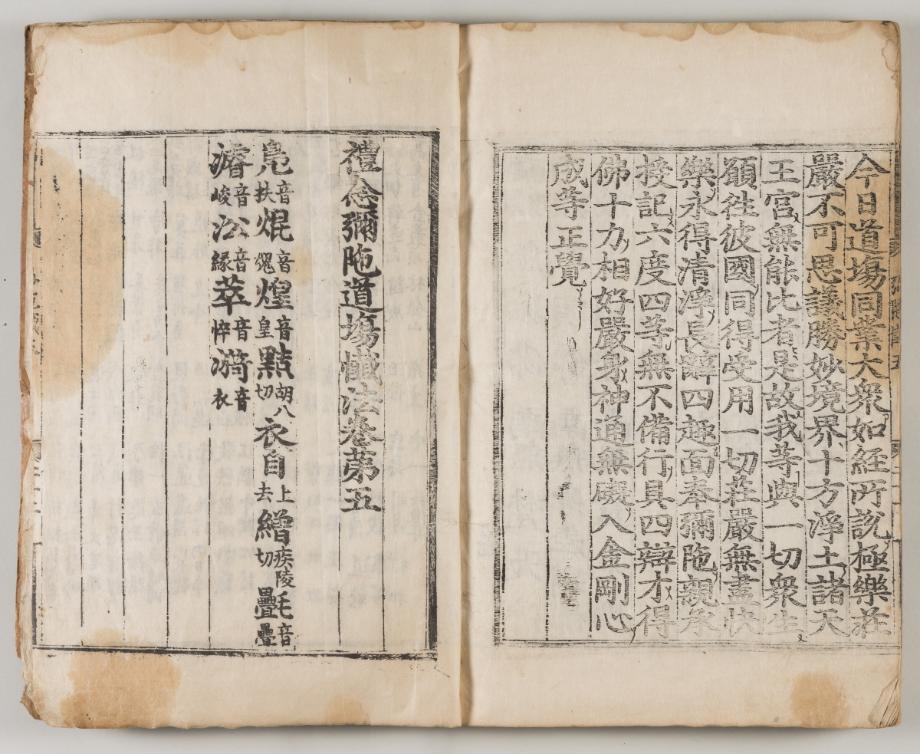 今日道塲同業大衆如經所說極樂莊
嚴不可思議勝妙境界十方淨土諸天
王宮無能比者是故我等與一切衆生
願徃彼國同得受用一切莊嚴無盡快
樂永得清淨長辭四趣面奉彌陁親承
授記六度四等無不備行具四辯才得
佛十力相好嚴身神通無礙入金剛心
成等正覺
禮念彌陁道塲懺法卷第五
鳧音扶焜音䰟煌音皇黠胡八切衣自上去繒疾陵切㲲音疊
濬音峻沿音縁萃音悴漪音衣